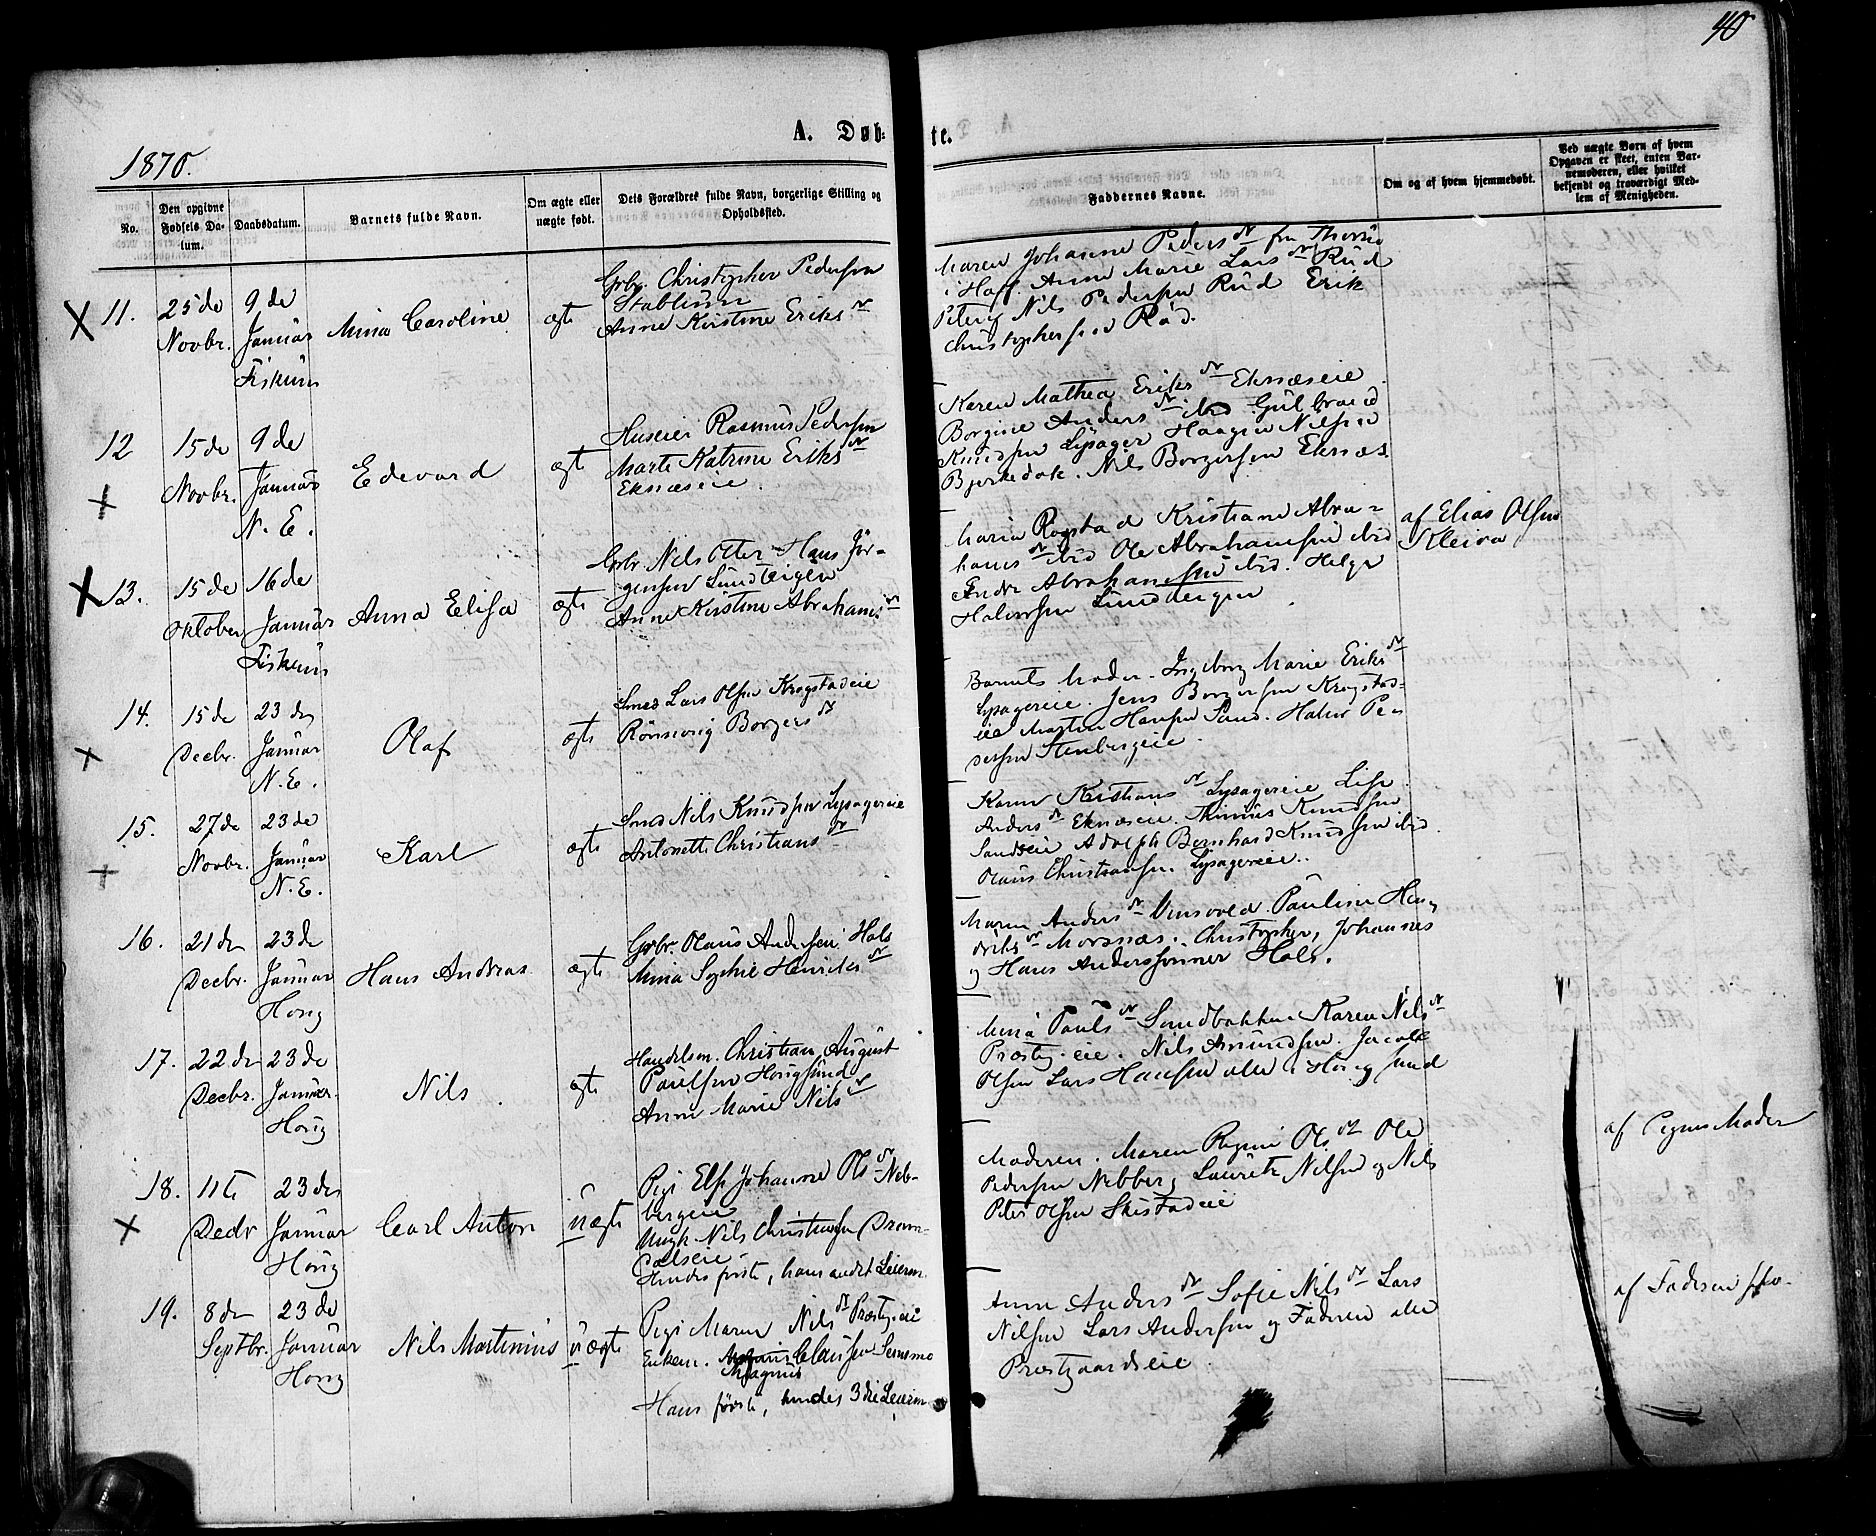 40
A. Døbte.
1870.
No.
Den opgivne Fødsels Datum.
Daabsdatum.
Barnets fulde Navn.
Om ægte eller uægte født.
Dets Forældres fulde Navn, borgerlige Stilling og Opholdssted.
Faddernes Navne.
Om og af hvem hjemmedøbt.
Ved uægte Børn af hvem Opgaven er skeet, enten Barnemoderen, eller hvilket bekjendt og troværdigt Medlem af Menigheden.
X 11.
25de
Novbr.
9de
Januar
Fiskum
Mina Caroline
ægte
Gbr. Christopher Pedersen
Stablum
Anne Kirstine Eriksdr
Maren Johanne Pedersdr fra
i Houg. Anne Marie Larsdr Rud
Peter og Nils Pedersen Rud Erik
Christophersen Rud.
12
15de
Novbr.
9de
Januar
N. E.
Edevard
ægt
Huseier Rasmus Pedersen
Marte Katrine Eriksdr
Eknæseie.
Karen Mathea Eriksdr Eknæseie
Borgine Andersdr ibid Gulbrand
Knudsen Lysager Haagen Nilsen
Bjerkedok. Nils Borgersen Eknæs
X 13.
15de
Oktober
16de
Januar
Fiskum
Anna Elisa
ægte
Gbr. Nils Otter Hans Jør-
gensen Lundteigen
Anne Kirstine Abrahamsdr
Maria Rogstad Kristiane Abra-
hamsdr ibid Ole Abrahamsen ibid
Endre Abrahamsen ibid. Helge
Halvorsen Lundteigen
af Elias Olsen
Kleiva
14.
15de
Decbr.
23de
Januar
N. E.
Olaf
ægte
Smed Lars Olsen Krogstadeie
Rønnovig Borgersdr
Barnets Moder. Ingeborg Marie Eriksdr
Lysagereie. Jens Borgersen Krogstad-
eie Martin Hansen Sand. Halvor Pe-
dersen Stenbergeie.
15.
27de
Novbr.
23de
Januar
N. E.
Karl
ægte
Smed Nils Knudsen Lysagereie
Antonette Christiansdr
Karen Kristiansdr Lysagereie Lise
Andersdr Eknæseie. Knudsen
Sandseie Adolph Bernhard Knudsen ibid.
Olaus Christiansen. Lysagereie.
16.
21de
Decbr.
23de
Januar
Houg
Hans Andreas
ægte
Gbr. Olaus Andersen Hals
Mina Sophie Henriksdr
Maren Andersdr Vinsvold Pauline Hen-
riksdr Morsnæs. Christopher, Johannes
og Hans Anderssønner Hals.
17.
22de
Decbr.
23de
Januar.
Houg
Nils
ægte
Handelsm. Christian August
Paulsen Hougsund
Anne Marie Nilsdr
Mina Paulsdr Sandbakken Karen Nilsdr
Præstg.eie. Nils Amundsen. Jacob
Olsen Lars Hansen alle i Hougsund
18.
11te
Decbr
23de
Januar
Houg
Carl Anton
uægte
Pige Else Johanne Olsdr Neb-
bergeie
Ungk. Nils Christiansen Dram-
dalseie
Hendes første, hans andet Leierm.
Moderen. Maren Regine Olsdr Ole
Pedersen Nebberg Lauritz Nilsen og Nils
Peter Olsen Skistadeie
af Pigens Moder
19.
8de
Septbr.
23de
Januar
Houg
Nils Martinius
uægte
Pige Maren Nilsdr Præstg.eie
Enkem. Magnus Claussen Semsmo
Hans første, hendes 3die Leierm.
Anne Andersdr Sofie Nilsdr Lars
Nilsen Lars Andersen og Faderen alle
Præstgaardseie.
af Faderen